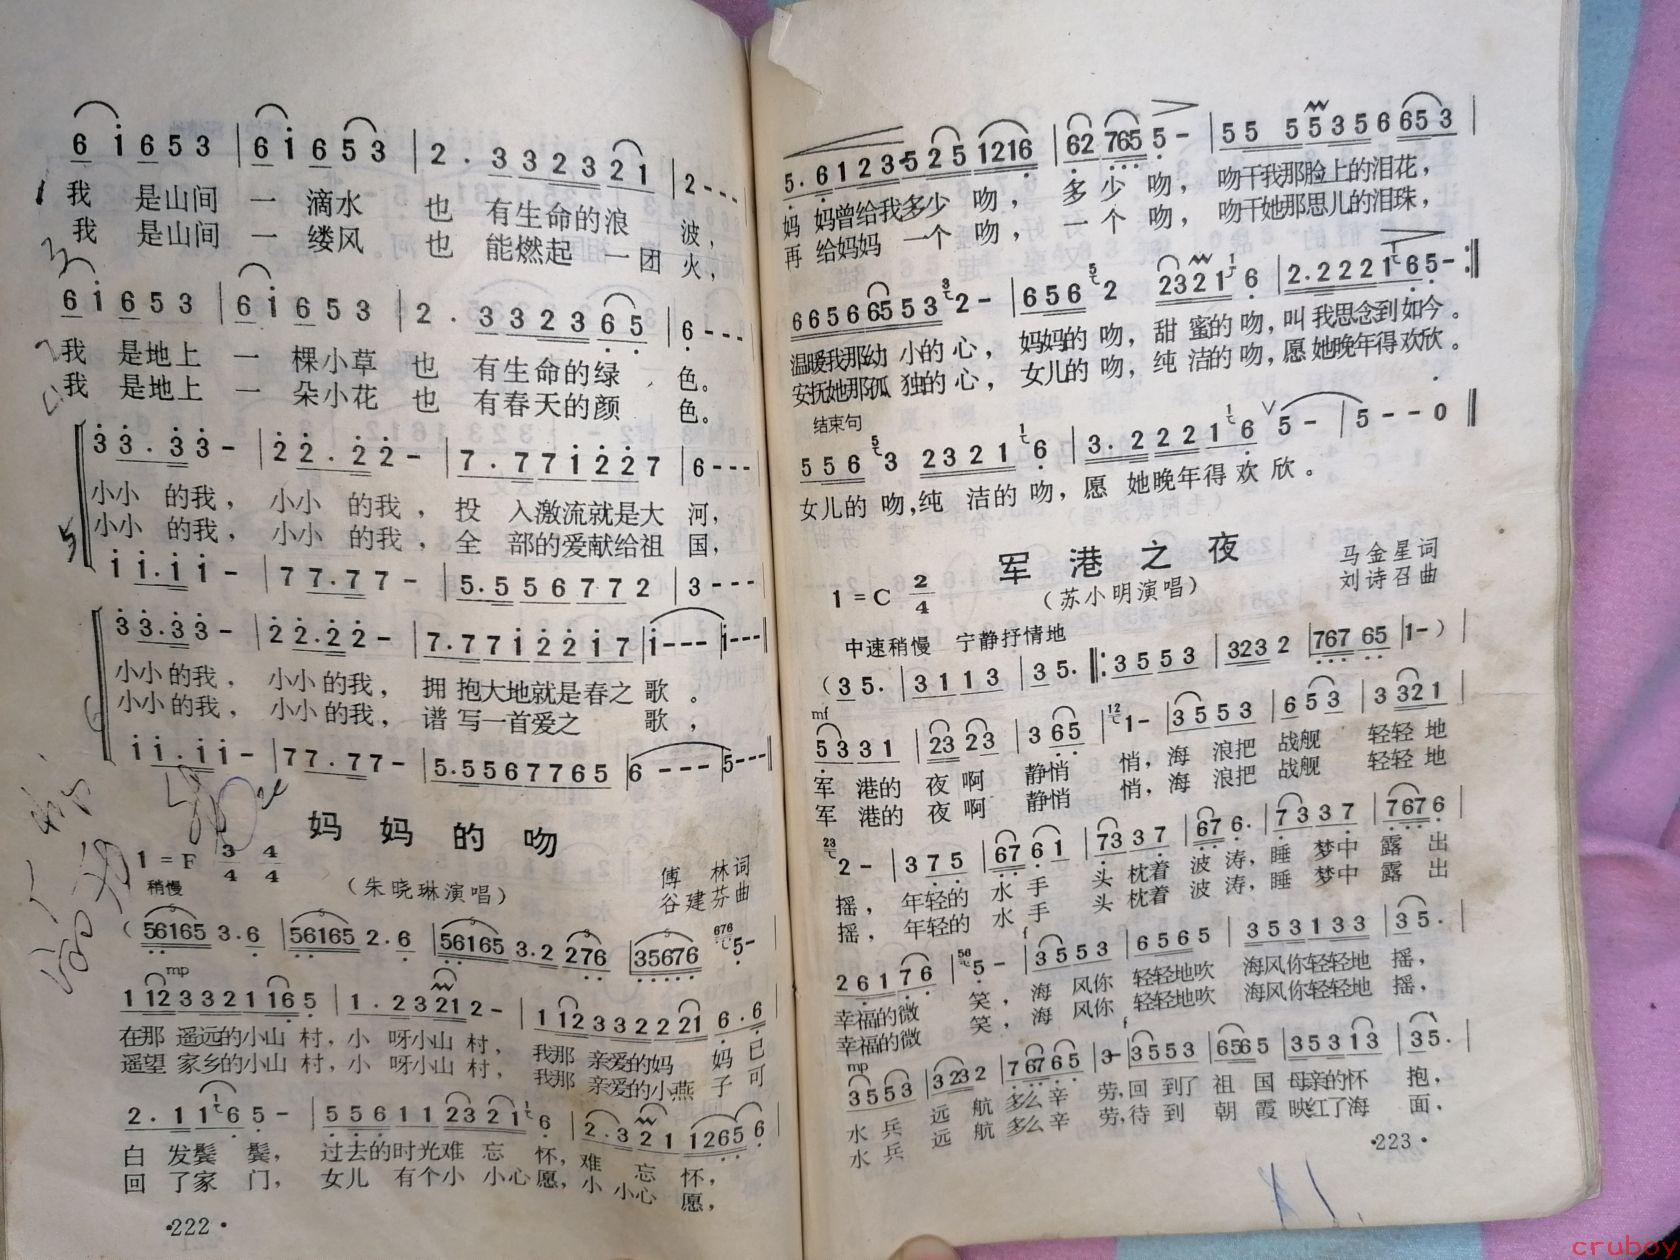 6 i 6 5 3 | 6 i 6 5 3 | 2 . 3 3 2 3 2 1 | 2 - - -
我 是山间 一 滴水 也 有生命的浪 波，
我 是山间 一 缕风 也 能燃起 一团 火，
6 i 6 5 3 | 6 i 6 5 3 | 2 . 3 3 2 3 6 5 | 6 - - -
我 是地上 一 棵小草 也 有生命的绿 色。
我 是地上 一 朵小花 也 有春天的颜 色。
3 3 . 3 3 - | 2 2 . 2 2 - | 7 . 7 7 1 2 2 7 | 6 - - -
小小 的我， 小小 的我， 投 入激流就是大 河，
小小 的我， 小小 的我， 全 部的爱献给祖 国，
1 1 . 1 1 - | 7 7 . 7 7 - | 5 . 5 5 6 7 7 2 | 3 - - -
3 3 . 3 3 - | 2 2 . 2 2 - | 7 . 7 7 1 2 2 1 7 | i - - - | i - - -
小小的我， 小小的我， 拥 抱大地就是春之 歌。
小小的我， 小小的我， 谱 写一首爱之 歌，
1 1 . 1 1 - | 7 7 . 7 7 - | 5 . 5 5 6 7 7 6 5 | 6 - - - | 5 - - -
妈妈的吻
1 = F 3/4 4/4
稍慢
（朱晓琳演唱）
傅 林词
谷建芬曲
( 56165 3 . 6 | 56165 2 . 6 | 56165 3 . 2 276 | 35676 5 -
mp
1 12 3 3 2 1 16 5 | 1 . 2 3 21 2 - | 1 12 3 3 2 2 21 6 . 6
在那 遥远的小山 村，小 呀小山 村， 我那 亲爱的妈 妈 已
遥望 家乡的小山 村，小 呀小山 村， 我那 亲爱的小燕 子 可
2 . 1 1 1 6 5 - | 5 5 6 1 1 23 21 6 | 2 . 3 21 1265 6
白 发鬓 鬓， 过去的时光难 忘 怀，难 忘 怀，
回 了家 门， 女儿 有个小 小心愿，小 小心 愿，
·222·
5 . 6 1 2 3 · 5 2 5 1216 | 62 765 5 - | 5 5 5 5 3 5 6 65 3 |
妈 妈曾给我多少 吻， 多 少 吻， 吻干我那脸上的泪花，
再 给妈妈 一个 吻， 一 个 吻， 吻干她那思儿的泪珠，
6 6 5 6 65 5 3 2 - | 6 5 6 2 2321 6 | 2 . 2 2 2 1 6 5 - :
温暖我那幼 小的 心， 妈妈的 吻，甜 蜜的 吻，叫 我思念到 如今。
安抚她那孤 独的 心， 女儿的 吻，纯 洁的 吻，愿 她晚年得 欢欣。
结束句
5 5 6 3 2 3 2 1 6 | 3 . 2 2 2 1 6 5 - | 5 - - 0
女儿的 吻，纯 洁的 吻，愿 她晚年得 欢 欣。
军港之夜
1 = C 2/4
（苏小明演唱）
马金星词
刘诗召曲
中速稍慢 宁静抒情地
( 3 5 . | 3 1 1 3 | 3 5 . : 3 5 5 3 | 323 2 | 767 65 | 1 - ) |
mf
5 3 3 1 | 23 23 | 3 65 | 1 - | 3 5 5 3 | 6 5 3 | 3 321 |
军 港的 夜 啊 静悄 悄，海 浪把 战舰 轻轻 地
军 港的 夜 啊 静悄 悄，海 浪把 战舰 轻轻 地
2 - | 3 7 5 | 67 6 1 | 7 3 3 7 | 67 6 . | 7 3 3 7 | 767 6 |
摇， 年轻的 水 手 头 枕着 波 涛，睡 梦中 露 出
摇， 年轻的 水 手 头 枕着 波 涛，睡 梦中 露 出
2 6 1 7 6 | 5 - | 3 5 5 3 | 6 5 6 5 | 3 5 3 1 3 3 | 3 5 . |
幸福的微 笑，海 风你 轻轻地吹 海风你轻轻地 摇，
幸福的微 笑，海 风你 轻轻地吹 海风你轻轻地 摇，
mp
3 5 5 3 | 3 23 2 | 7 67 6 5 | 3 - | 3 5 5 3 | 65 65 | 3 5 3 1 3 | 3 5 . |
水 兵 远 航 多么 辛 劳，回 到了 祖 国 母亲的怀 抱，
水 兵 远 航 多么 辛 劳，待 到 朝 霞 映红了海 面，
·223·
cruboy